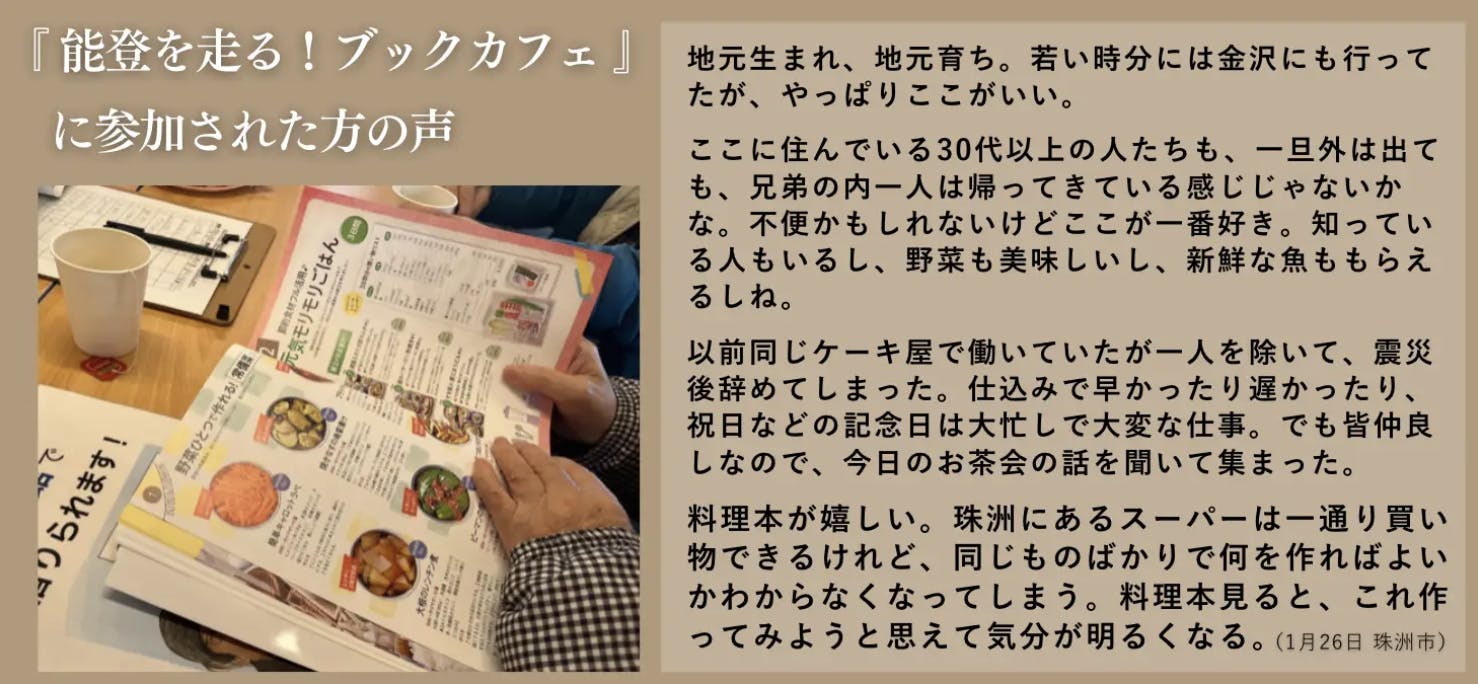 『能登を走る！ブックカフェ』
に参加された方の声
地元生まれ、地元育ち。若い時分には金沢にも行って
たが、やっぱりここがいい。
ここに住んでいる30代以上の人たちも、一旦外は出て
も、兄弟の内一人は帰ってきている感じじゃないか
な。不便かもしれないけどここが一番好き。知ってい
る人もいるし、野菜も美味しいし、新鮮な魚ももらえ
るしね。
以前同じケーキ屋で働いていたが一人を除いて、震災
後辞めてしまった。仕込みで早かったり遅かったり、
祝日などの記念日は大忙しで大変な仕事。でも皆仲良
しなので、今日のお茶会の話を聞いて集まった。
料理本が嬉しい。珠洲にあるスーパーは一通り買い
物できるけれど、同じものばかりで何を作ればよい
かわからなくなってしまう。料理本見ると、これ作
ってみようと思えて気分が明るくなる。(1月26日 珠洲市)
節約食材フル活用♪
元気モリモリごはん
野菜ひとつで作れる！常備菜
簡単キャロットラペ
大根のレンチン煮
られます！